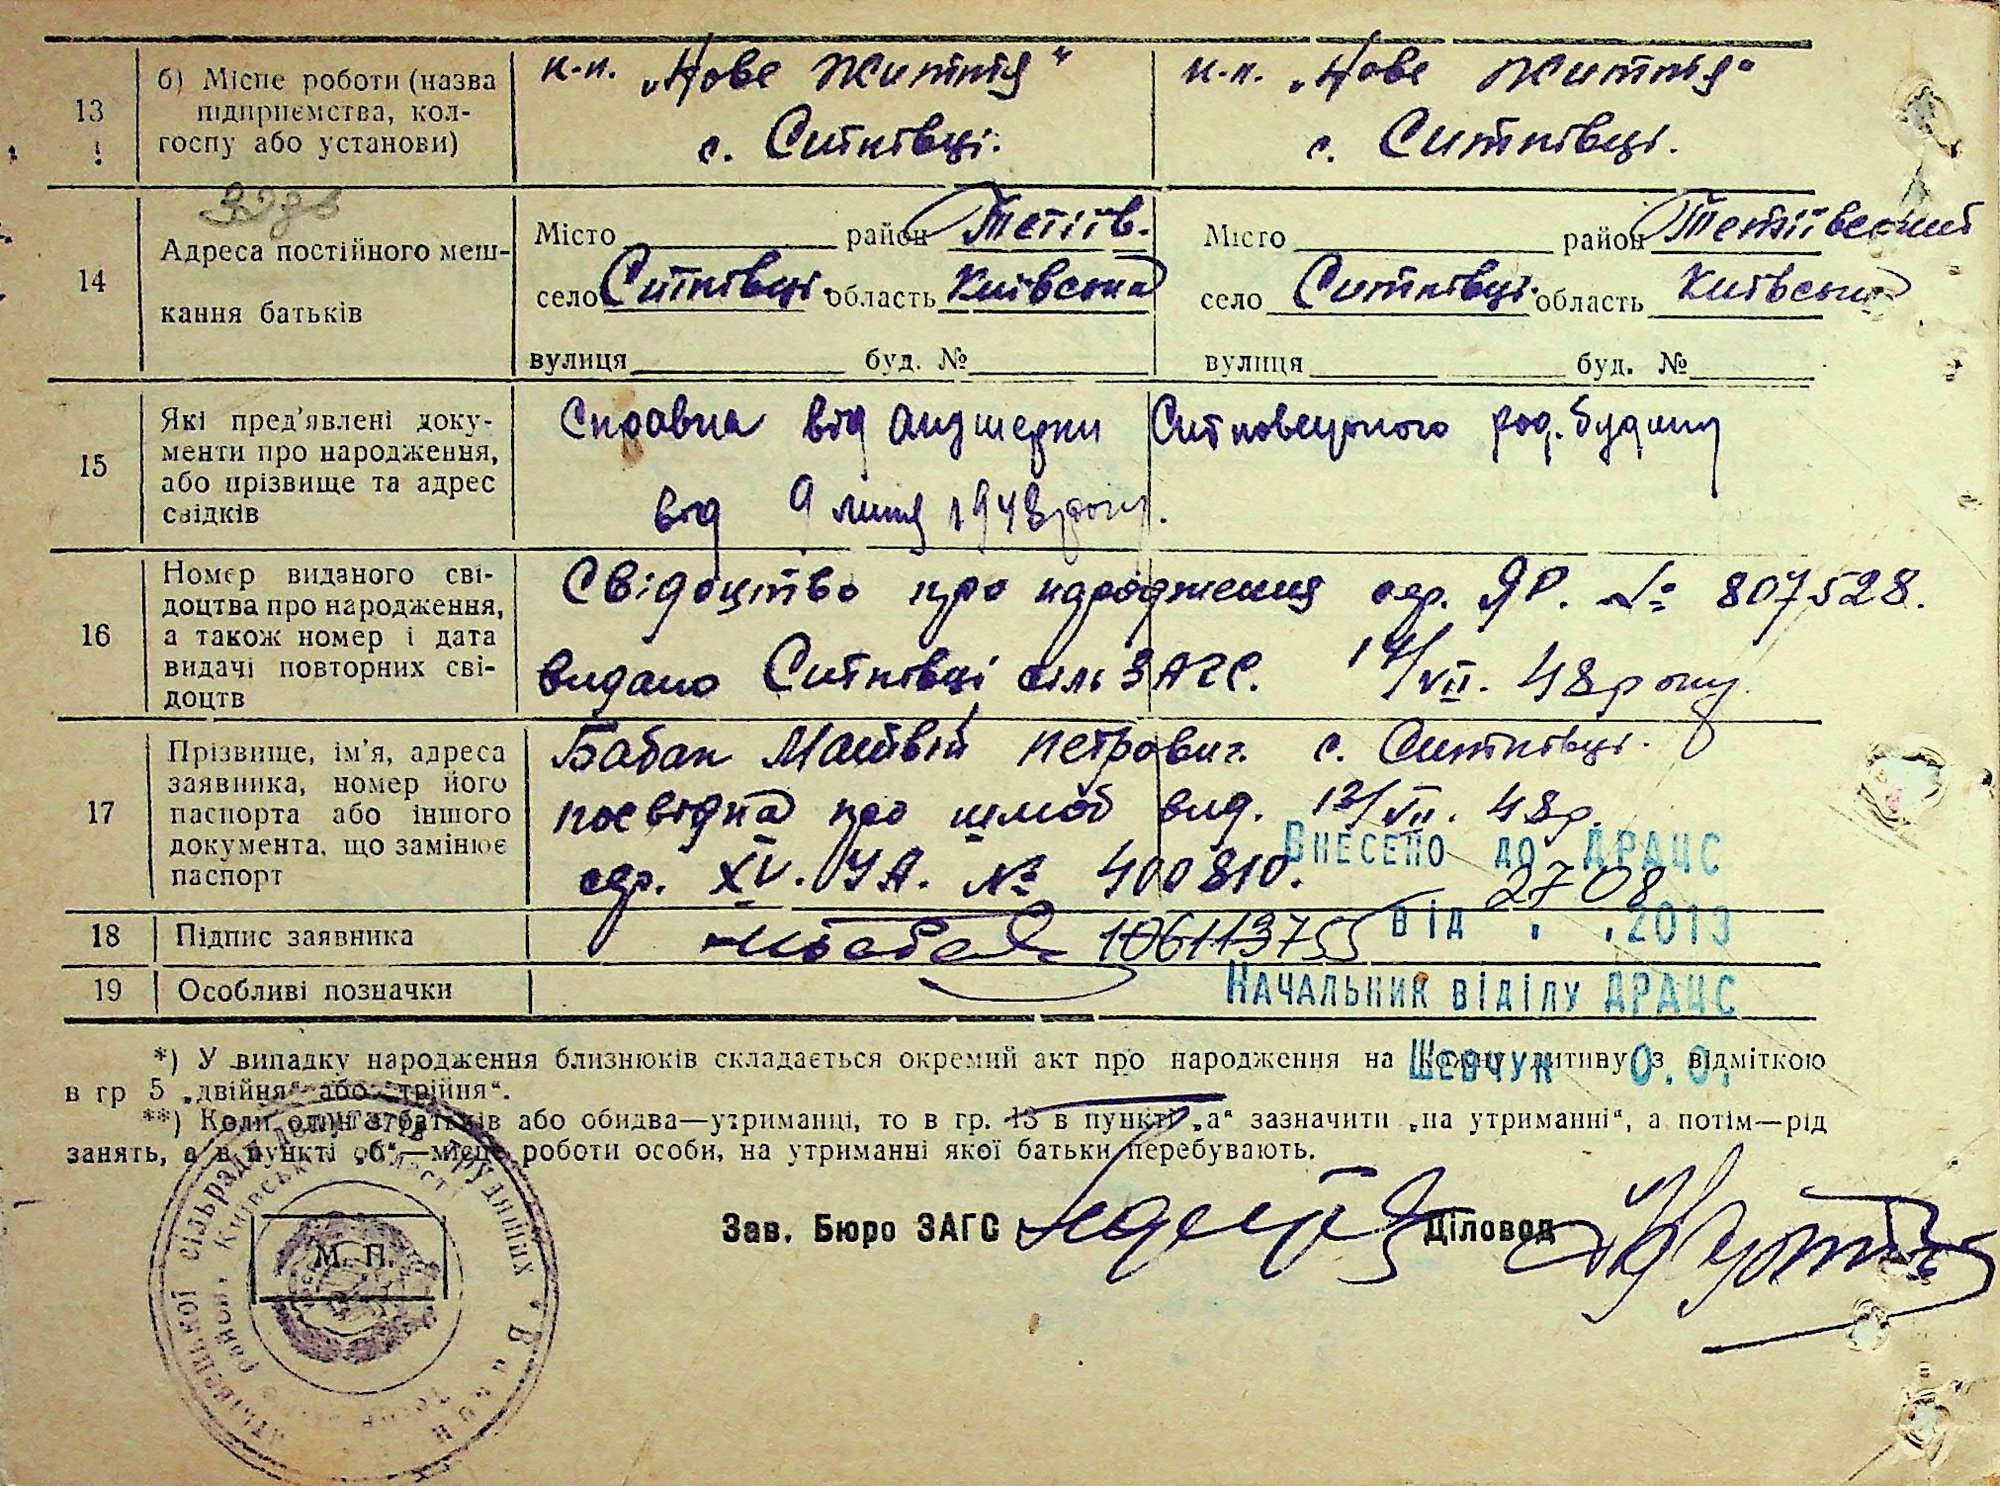 13 б) Місце роботи (назва підприємства, колгоспу або установи)
к-п. „Нове Життя“ с. Ситківці.
к-п. „Нове Життя“ с. Ситківці.
14 Адреса постійного мешкання батьків
Місто район Тетіїв.
село Ситківці область Київська
вулиця буд. №
Місто район Тетіївський
село Ситківці область Київська
вулиця буд. №
15 Які пред'явлені документи про народження, або прізвище та адрес свідків
Справка від акушерки Ситковецького род. будинку
від 9 липня 1948 року.
16 Номер виданого свідоцтва про народження, а також номер і дата видачі повторних свідоцтв
Свідоцтво про народження сер. ЯР. № 807528.
видано Ситківці сіль ЗАГС. /VII. 48 року
17 Прізвище, ім'я, адреса заявника, номер його паспорта або іншого документа, що замінює паспорт
Бабак Матвій Петрович с. Ситківці.
посвідка про шлюб вид. 12/VII. 48 р.
сер. XV. УА. № 400810.
Внесено до ДРАЦС
18 Підпис заявника
106113755
від 27 08 .2013
19 Особливі позначки
Начальник відділу ДРАЦС
Шевчук О.О.
*) У випадку народження близнюків складається окремий акт про народження на кожну дитину з відміткою
в гр 5 „двійня“ або „трійня“.
**) Коли один з батьків або обидва—утриманці, то в гр. 13 в пункті „а“ зазначити „на утриманні“, а потім—рід
занять, а в пункті „б“—місце роботи особи, на утриманні якої батьки перебувають.
Зав. Бюро ЗАГС Діловод
М. П.
сільради депутатів трудящих